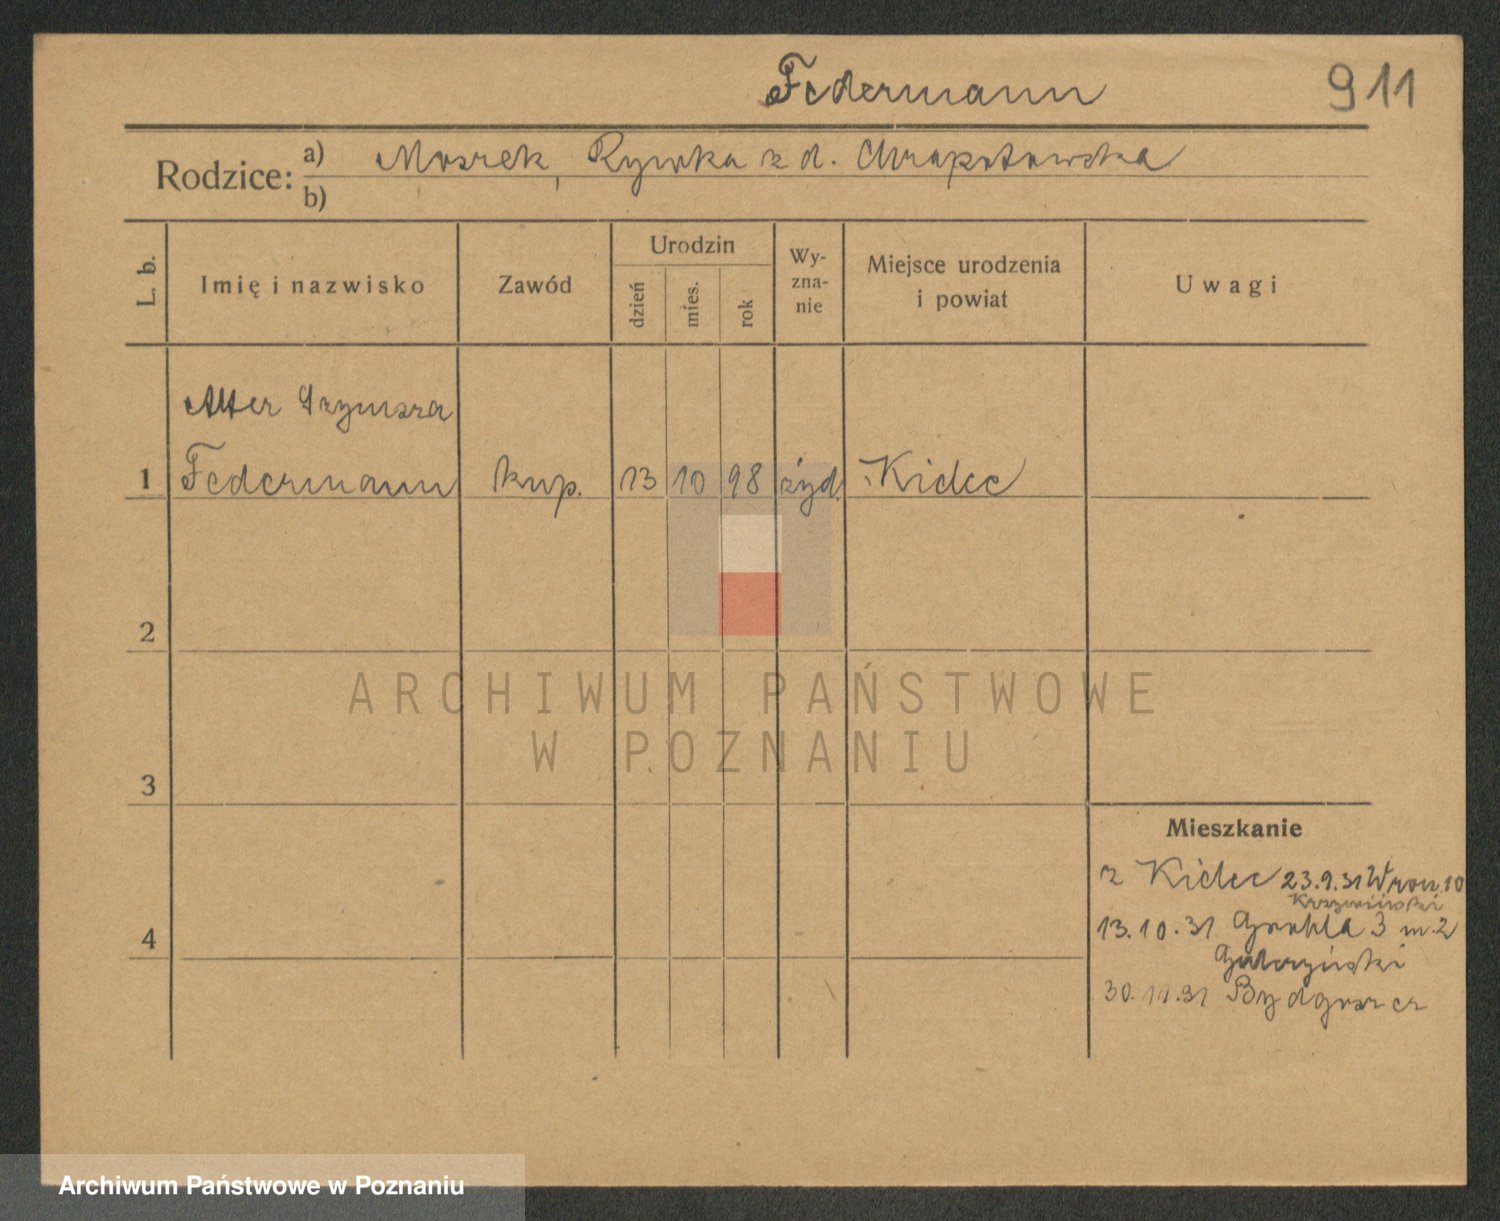 Federmann 911
Rodzice: a) Moszek, Rywka z d. Chrapotowska
b)
L. b. Imię i nazwisko Zawód Urodzin dzień mies. rok Wy-zna-nie Miejsce urodzenia i powiat Uwagi
Alter Szymsza
1 Federmann kup. 13 10 98 żyd. Kielce
2
ARCHIWUM PAŃSTWOWE
W POZNANIU
3
Mieszkanie
z Kielc 23.9.31 Wron. 10
Krzywiński
4 13.10.31 Grobla 3 m 2
30.11.31 Bydgoszcz
Archiwum Państwowe w Poznaniu